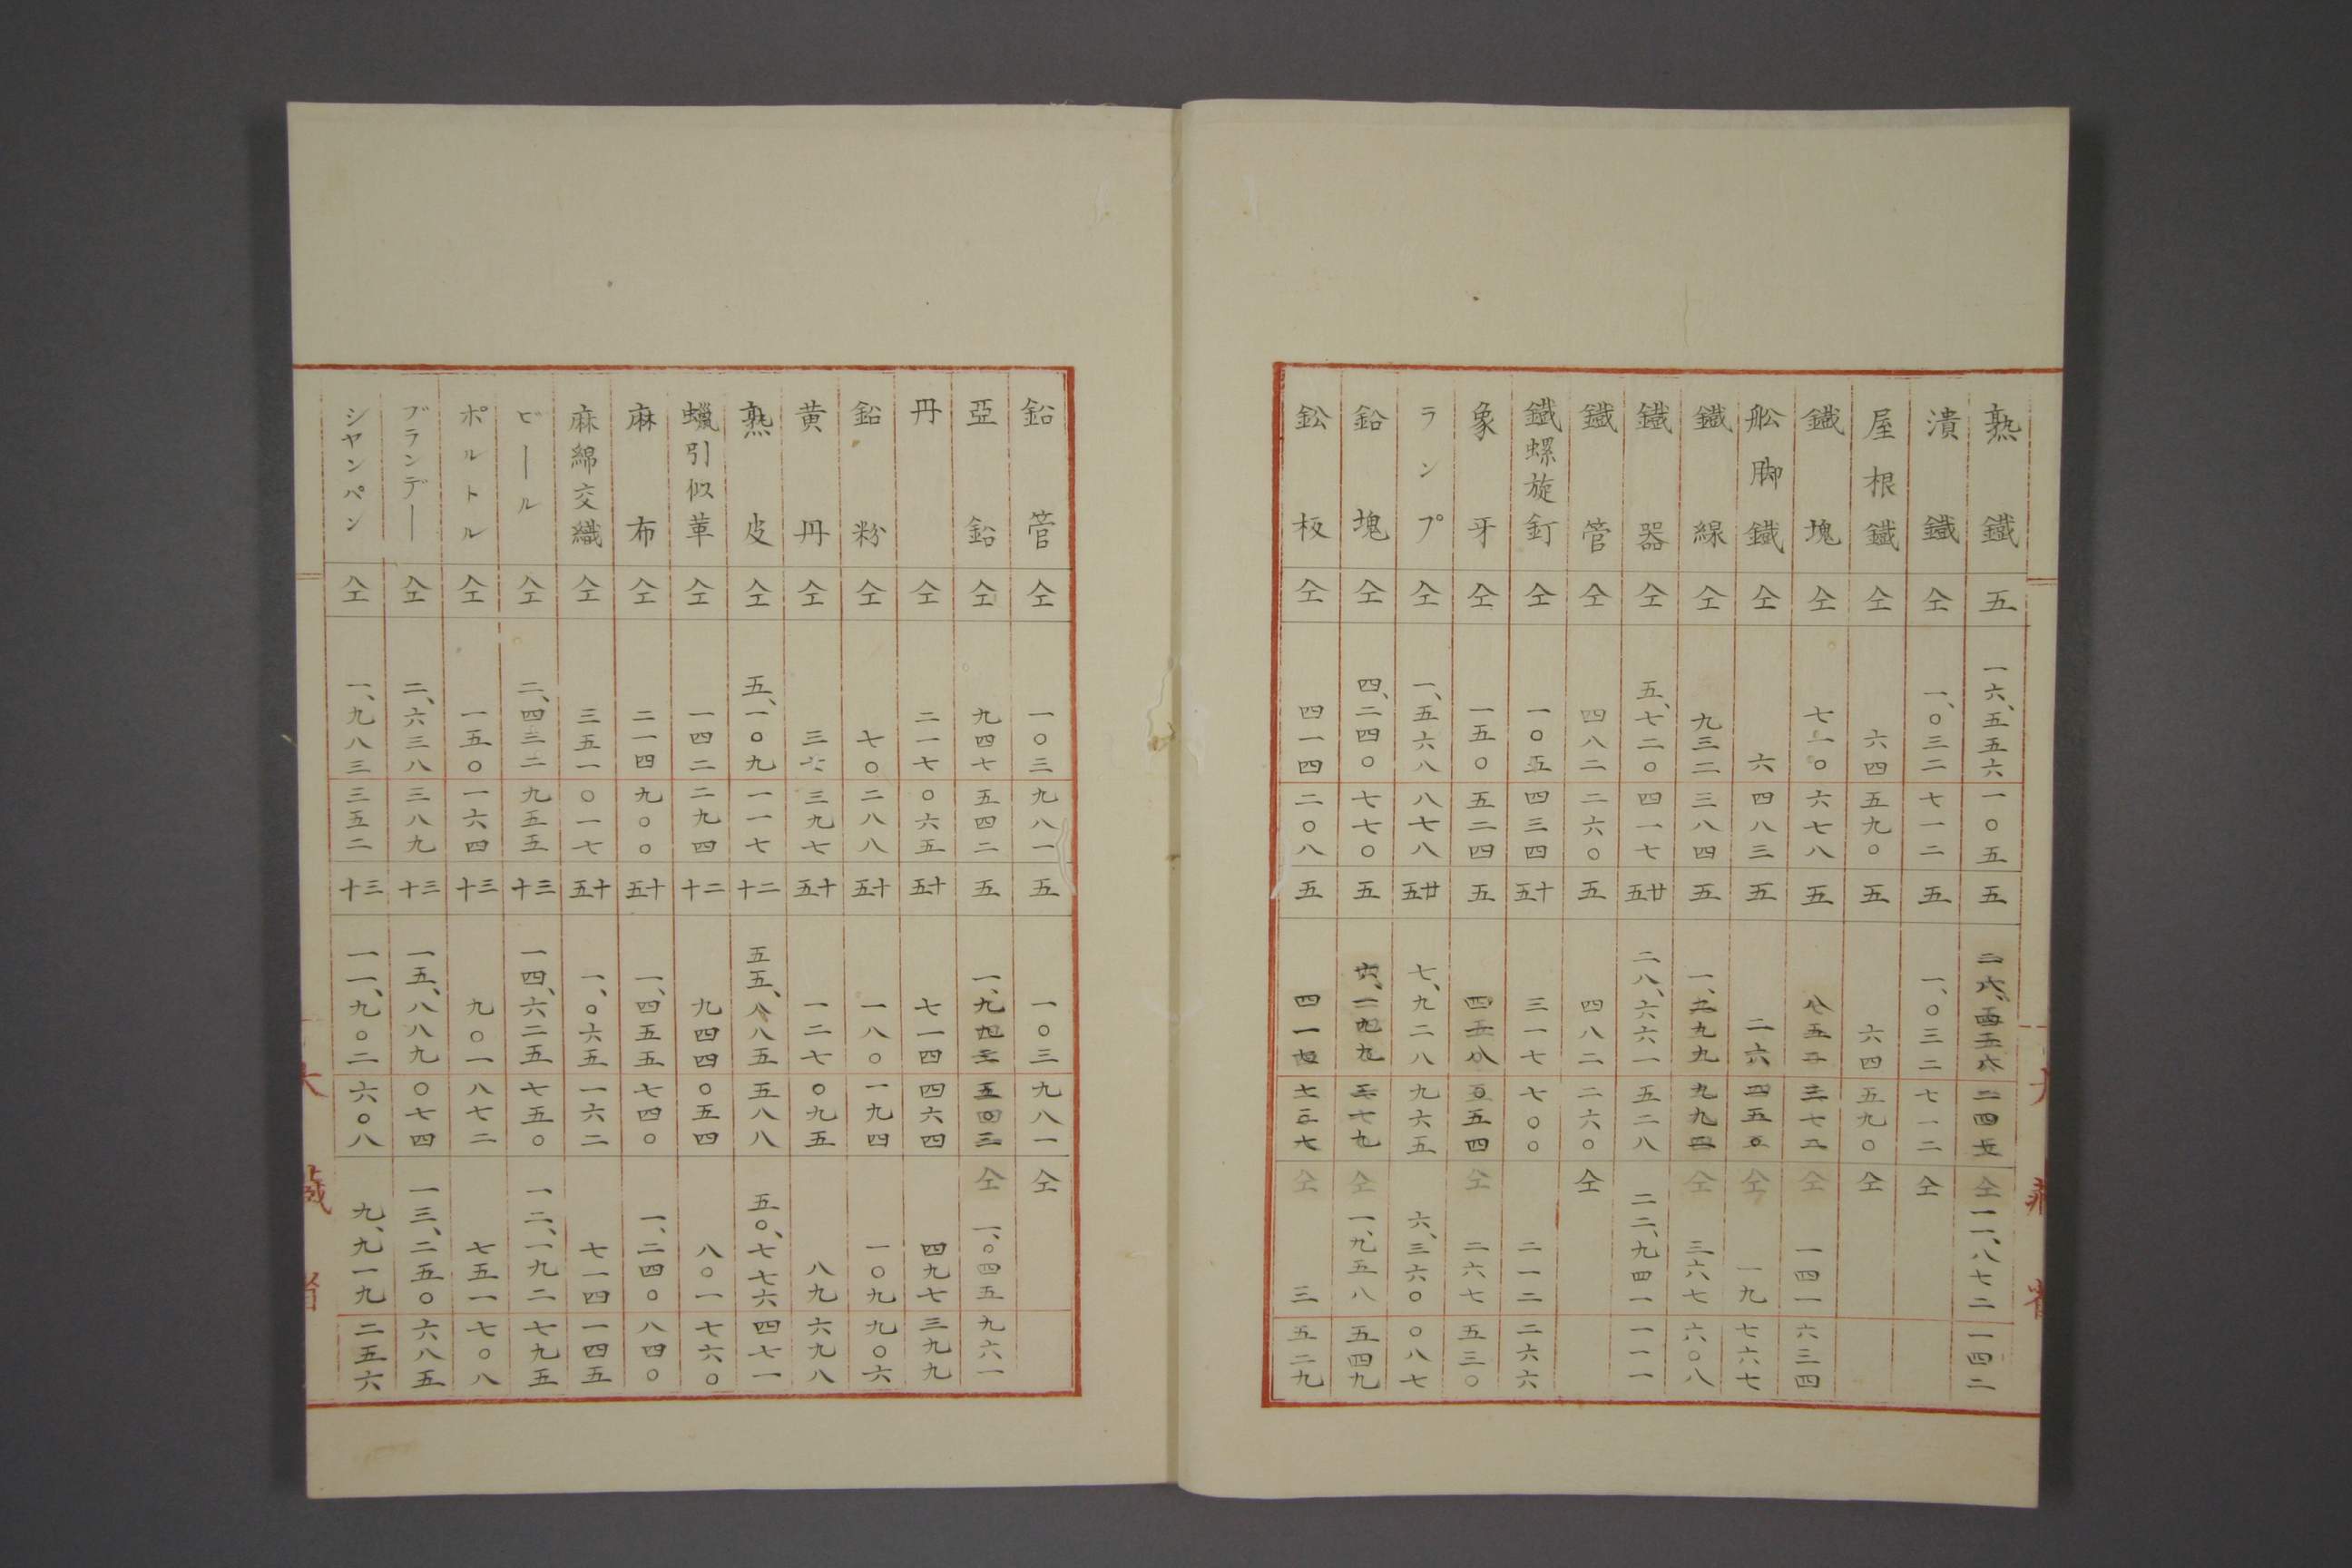 熟鐵 五 一六、五五六 一〇五 五 二八、四二八 二四七 仝 一一、八七二 一四二
潰鐵 仝 一、〇三二 七一二 五 一、〇三二 七一二 仝
屋根鐵 仝 六四 五九〇 五 六四 五九〇 仝
鐵塊 仝 七一〇 六七八 五 八五二 三一二 仝 一四一 六三四
舩脚鐵 仝 六 四八三 五 二六 二五〇 仝 一九 七六七
鐵線 仝 九三二 三八四 五 一、二九九 九九二 仝 三六七 六〇八
鐵器 仝 五、七二〇 四一七 廿五 二八、六六一 五二八 二二、九四一 一一一
鐵管 仝 四八二 二六〇 五 四八二 二六〇 仝
鐵螺旋釘 仝 一〇五 四三四 十五 三一七 七〇〇 二一二 二六六
象牙 仝 一五〇 五二四 五 四一八 〇五四 仝 二六七 五三〇
ランプ 仝 一、五六八 八七八 廿五 七、九二八 九六五 六、三六〇 〇八七
鉛塊 仝 四、二四〇 七七〇 五 六、一九九 三一九 仝 一、九五八 五四九
鈆板 仝 四一四 二〇八 五 四一七 七三七 仝 三 五二九
鉛管 仝 一〇三 九八一 五 一〇三 九八一 仝
亞鉛 仝 九四七 五四二 五 一、九九三 五〇三 仝 一、〇四五 九六一
丹 仝 二一七 〇六五 十五 七一四 四六四 四九七 三九九
鉛粉 仝 七〇 二八八 十五 一八〇 一九四 一〇九 九〇六
黄丹 仝 三七 三九七 十五 一二七 〇九五 八九 六九八
熟皮 仝 五、一〇九 一一七 二十 五五、八八五 五八八 五〇、七七六 四七一
蠟引似革 仝 一四二 二九四 二十 九四四 〇五四 八〇一 七六〇
麻布 仝 二一四 九〇〇 十五 一、四五五 七四〇 一、二四〇 八四〇
麻綿交織 仝 三五一 〇一七 十五 一、〇六五 一六二 七一四 一四五
ビール 仝 二、四三二 九五五 三十 一四、六二五 七五〇 一二、一九二 七九五
ポルトル 仝 一五〇 一六四 三十 九〇一 八七二 七五一 七〇八
ブランデー 仝 二、六三八 三八九 三十 一五、八八九 〇七四 一三、二五〇 六八五
シヤンパン 仝 一、九八三 三五二 三十 一一、九〇二 六〇八 九、九一九 二五六